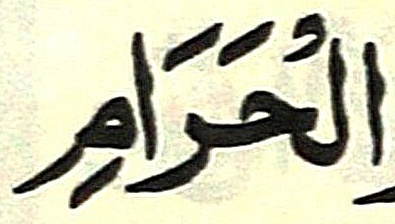 الْحَرَامِ